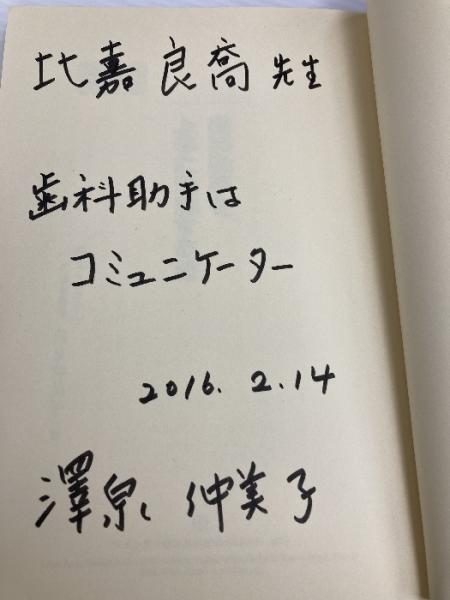 比嘉良喬先生
歯科助手は
コミュニケーター
2016.2.14
澤泉仲美子